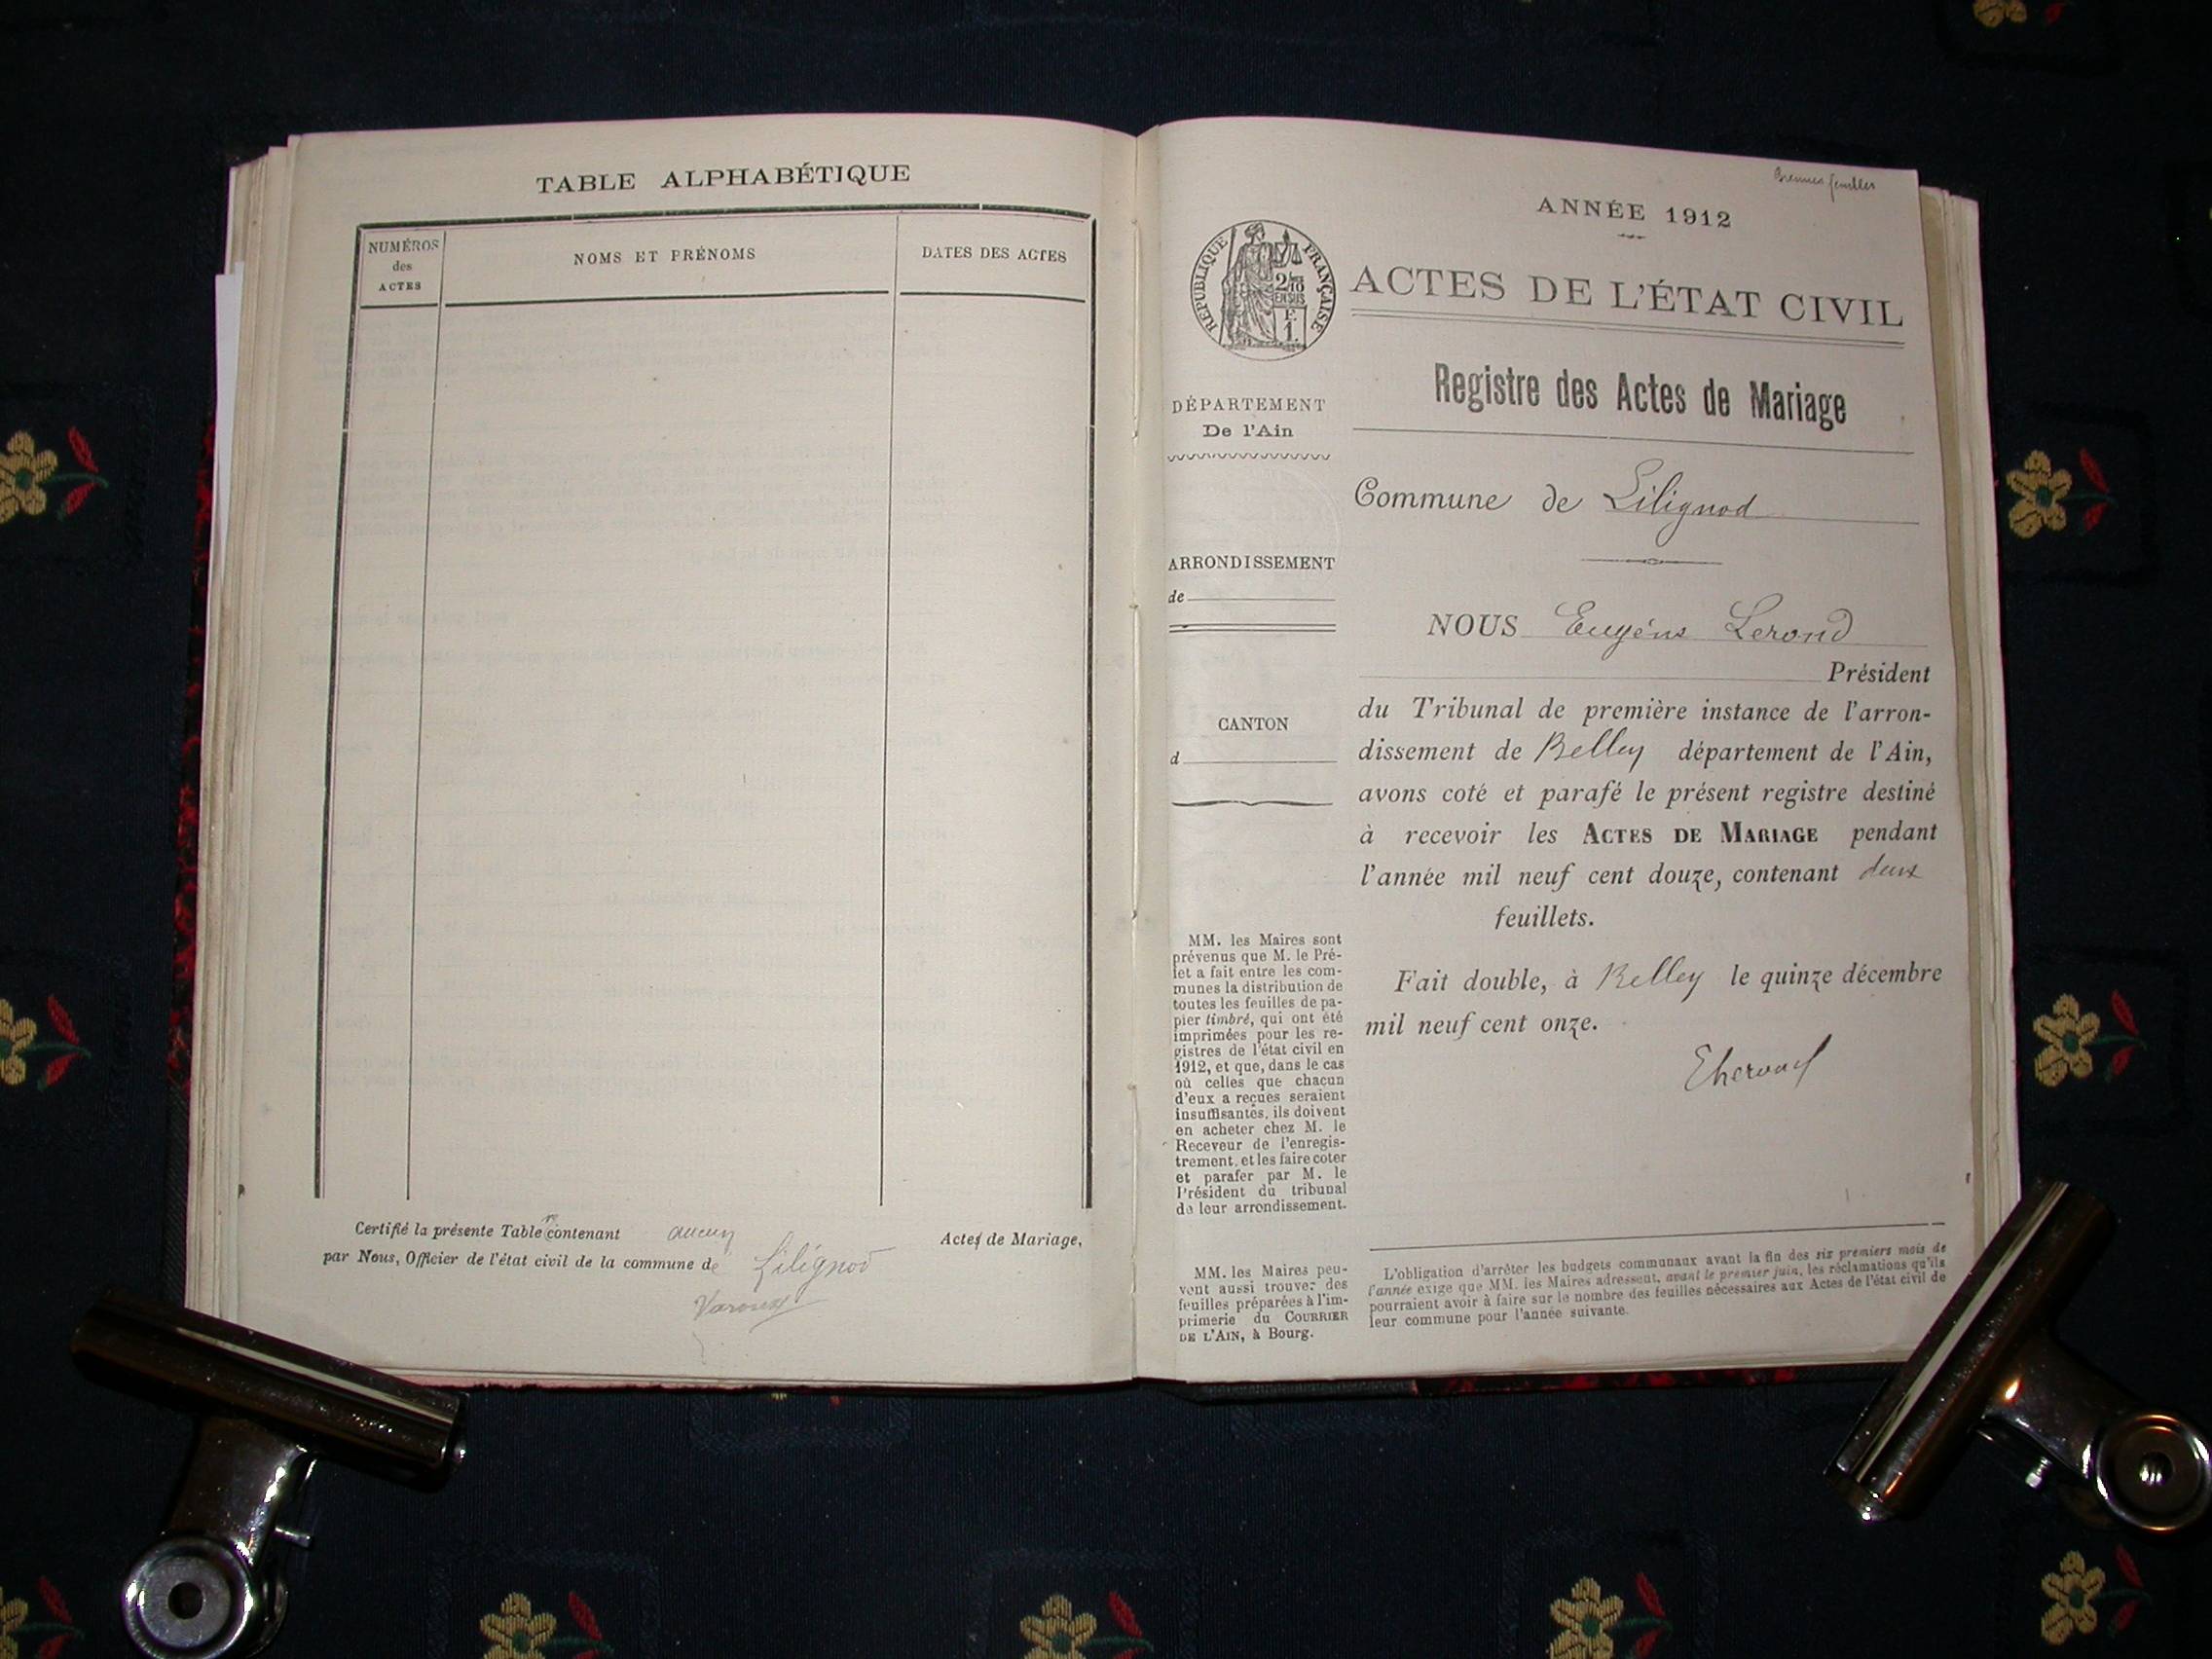 TABLE ALPHABÉTIQUE
NUMÉROS
des
ACTES
NOMS ET PRÉNOMS
DATES DES ACTES
Certifié la présente Table contenant aucun Actes de Mariage,
par Nous, Officier de l'état civil de la commune de Lilignod
ANNÉE 1912
RÉPUBLIQUE FRANÇAISE
2/10
EN SUS
F.
1.
ACTES DE L'ÉTAT CIVIL
Registre des Actes de Mariage
DÉPARTEMENT
De l'Ain
ARRONDISSEMENT
de
CANTON
d
MM. les Maires sont
prévenus que M. le Pré-
fet a fait entre les com-
munes la distribution de
toutes les feuilles de pa-
pier timbré, qui ont été
imprimées pour les re-
gistres de l'état civil en
1912, et que, dans le cas
où celles que chacun
d'eux a reçues seraient
insuffisantes, ils doivent
en acheter chez M. le
Receveur de l'enregis-
trement, et les faire coter
et parafer par M. le
Président du tribunal
de leur arrondissement.
MM. les Maires peu-
vent aussi trouver des
feuilles préparées à l'im-
primerie du COURRIER
DE L'AIN, à Bourg.
Commune de Lilignod
NOUS Eugène Lerond
Président
du Tribunal de première instance de l'arron-
dissement de Belley département de l'Ain,
avons coté et parafé le présent registre destiné
à recevoir les ACTES DE MARIAGE pendant
l'année mil neuf cent douze, contenant deux
feuillets.
Fait double, à Belley le quinze décembre
mil neuf cent onze.
L'obligation d'arrêter les budgets communaux avant la fin des six premiers mois de
l'année exige que MM. les Maires adressent, avant le premier juin, les réclamations qu'ils
pourraient avoir à faire sur le nombre des feuilles nécessaires aux Actes de l'état civil de
leur commune pour l'année suivante.